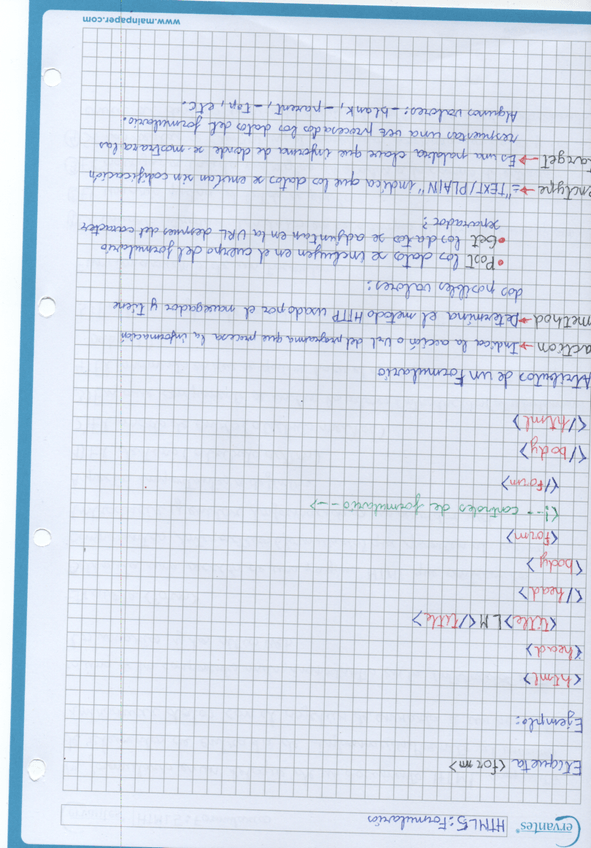 Cervantes®
HTML5: Formularios
Etiqueta <form>
Ejemplo:
<html>
<head>
<title>LM</title>
</head>
<body>
<form>
<!-- controles de formulario -->
</form>
</body>
</html>
Atributos de un Formulario
action → Indica la acción o URL del programa que procesa la información
method → Determina el metodo HTTP usado por el navegador y tiene
dos posibles valores:
• Post los datos se incluyen en el cuerpo del formulario
• Get los datos se adjuntan en la URL despues del caracter
separador ?
enctype → = "TEXT/PLAIN" indica que los datos se envían sin codificación
target → Es una palabra clave que informa de donde se mostrara las
respuestas una vez procesados los datos del formulario.
Algunos valores: -blank, -parent, -top, etc.
www.mainpaper.com